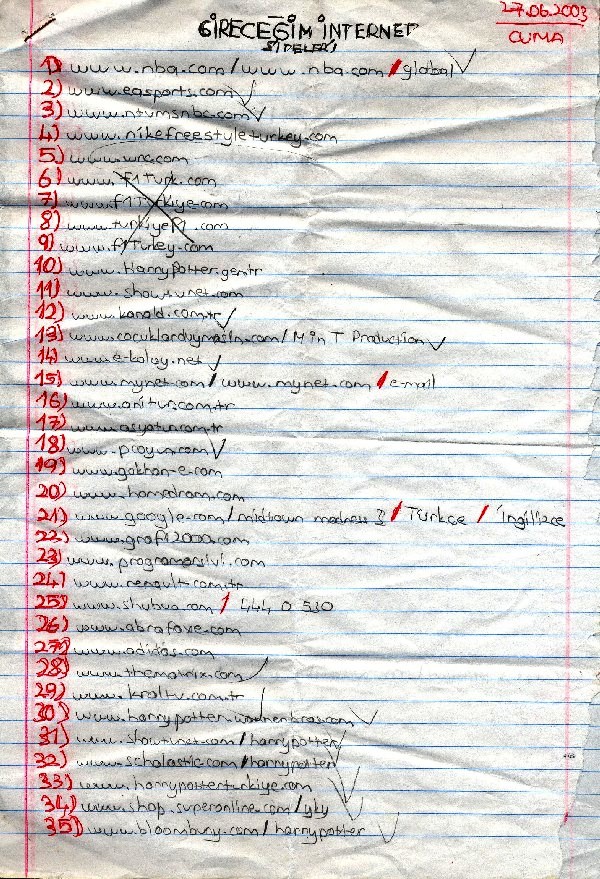 27.06.2003
CUMA
GİRECEĞİM İNTERNET
SİDELERİ
1) www.nba.com/www.nba.com/global
2) www.easports.com
3) www.ntvmsnbc.com
4) www.nikefreestyleturkey.com
5) www.wrc.com
6) www.F1Turk.com
7) www.f1Türkiye.com
8) www.turkiyeF1.com
9) www.f1Turkey.com
10) www.Harrypotter.gen.tr
11) www.showtvnet.com
12) www.kanald.com.tr
13) www.cocuklarduymasin.com/Min T Production
14) www.e-kolay.net
15) www.mynet.com/www.mynet.com/e-mail
16) www.anitur.com.tr
17) www.asyatur.com.tr
18) www.pcoyun.com
19) www.gokhan-e.com
20) www.hamdram.com
21) www.google.com/midtown madness 3/Türkçe/İngilizce
22) www.grafi2000.com
23) www.programarsivi.com
24) www.renault.com.tr
25) www.shubuo.com/444 0 530
26) www.abrafave.com
27) www.adidas.com
28) www.thematrix.com
29) www.kraltv.com.tr
30) www.harrypotter.warnerbros.com
31) www.showtvnet.com/harrypotter
32) www.scholastic.com/harrypotter
33) www.harrypotterturkiye.com
34) www.shop.superonline.com/yky
35) www.bloomsbury.com/harrypotter